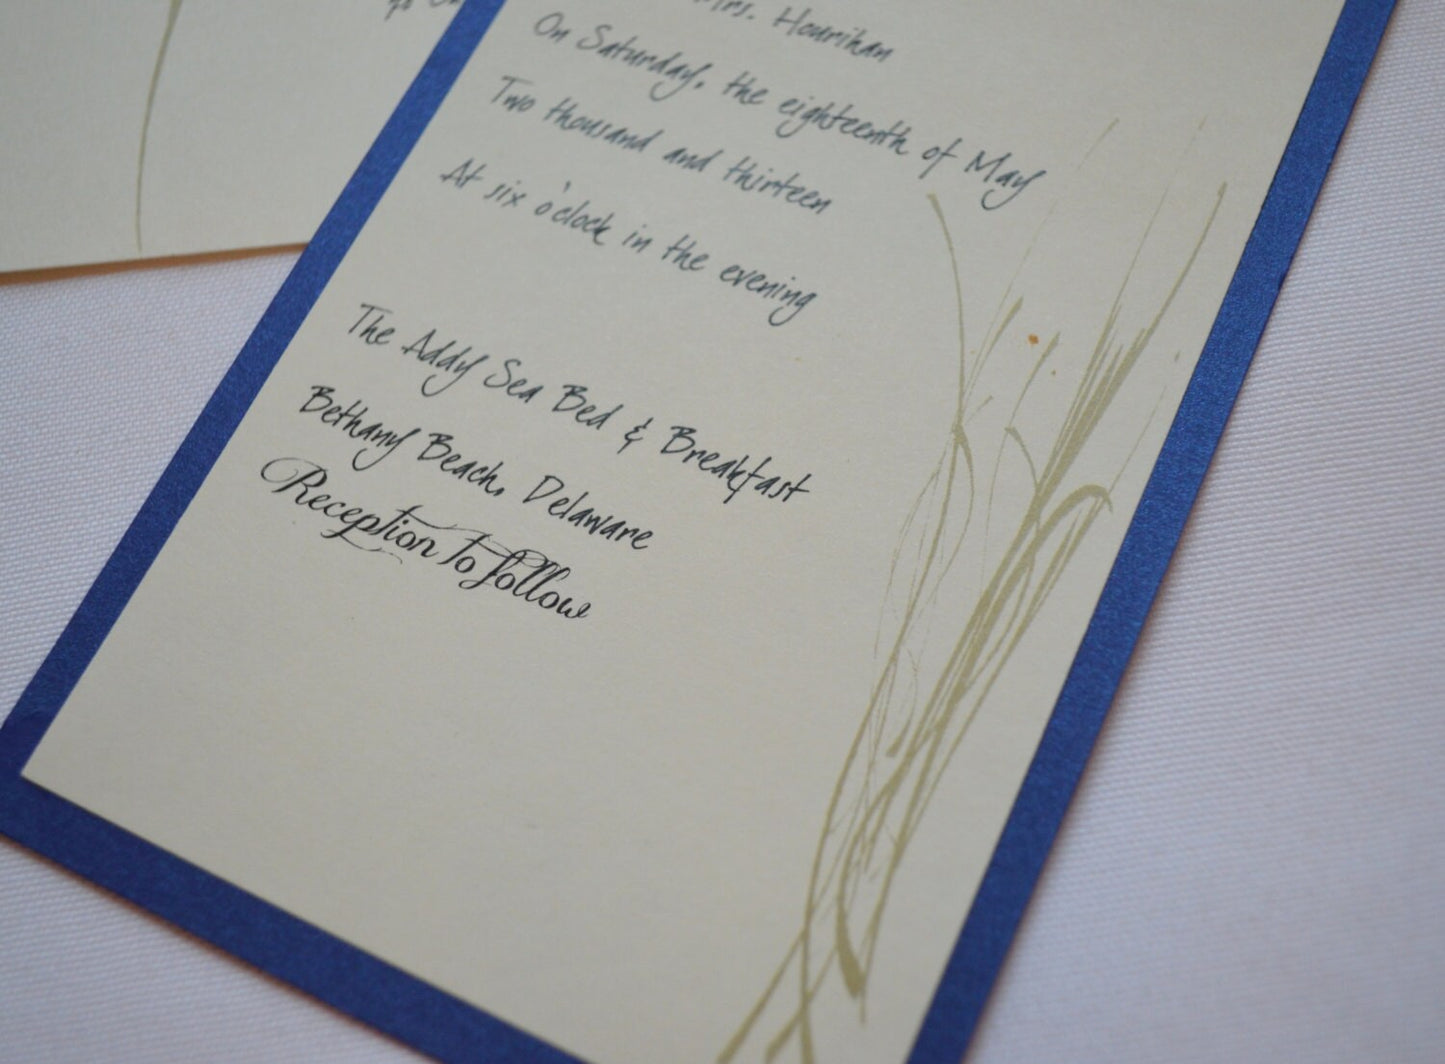 Mrs. Hourihan
On Saturday, the eighteenth of May
Two thousand and thirteen
At six o'clock in the evening
The Addy Sea Bed & Breakfast
Bethany Beach, Delaware
Reception to follow